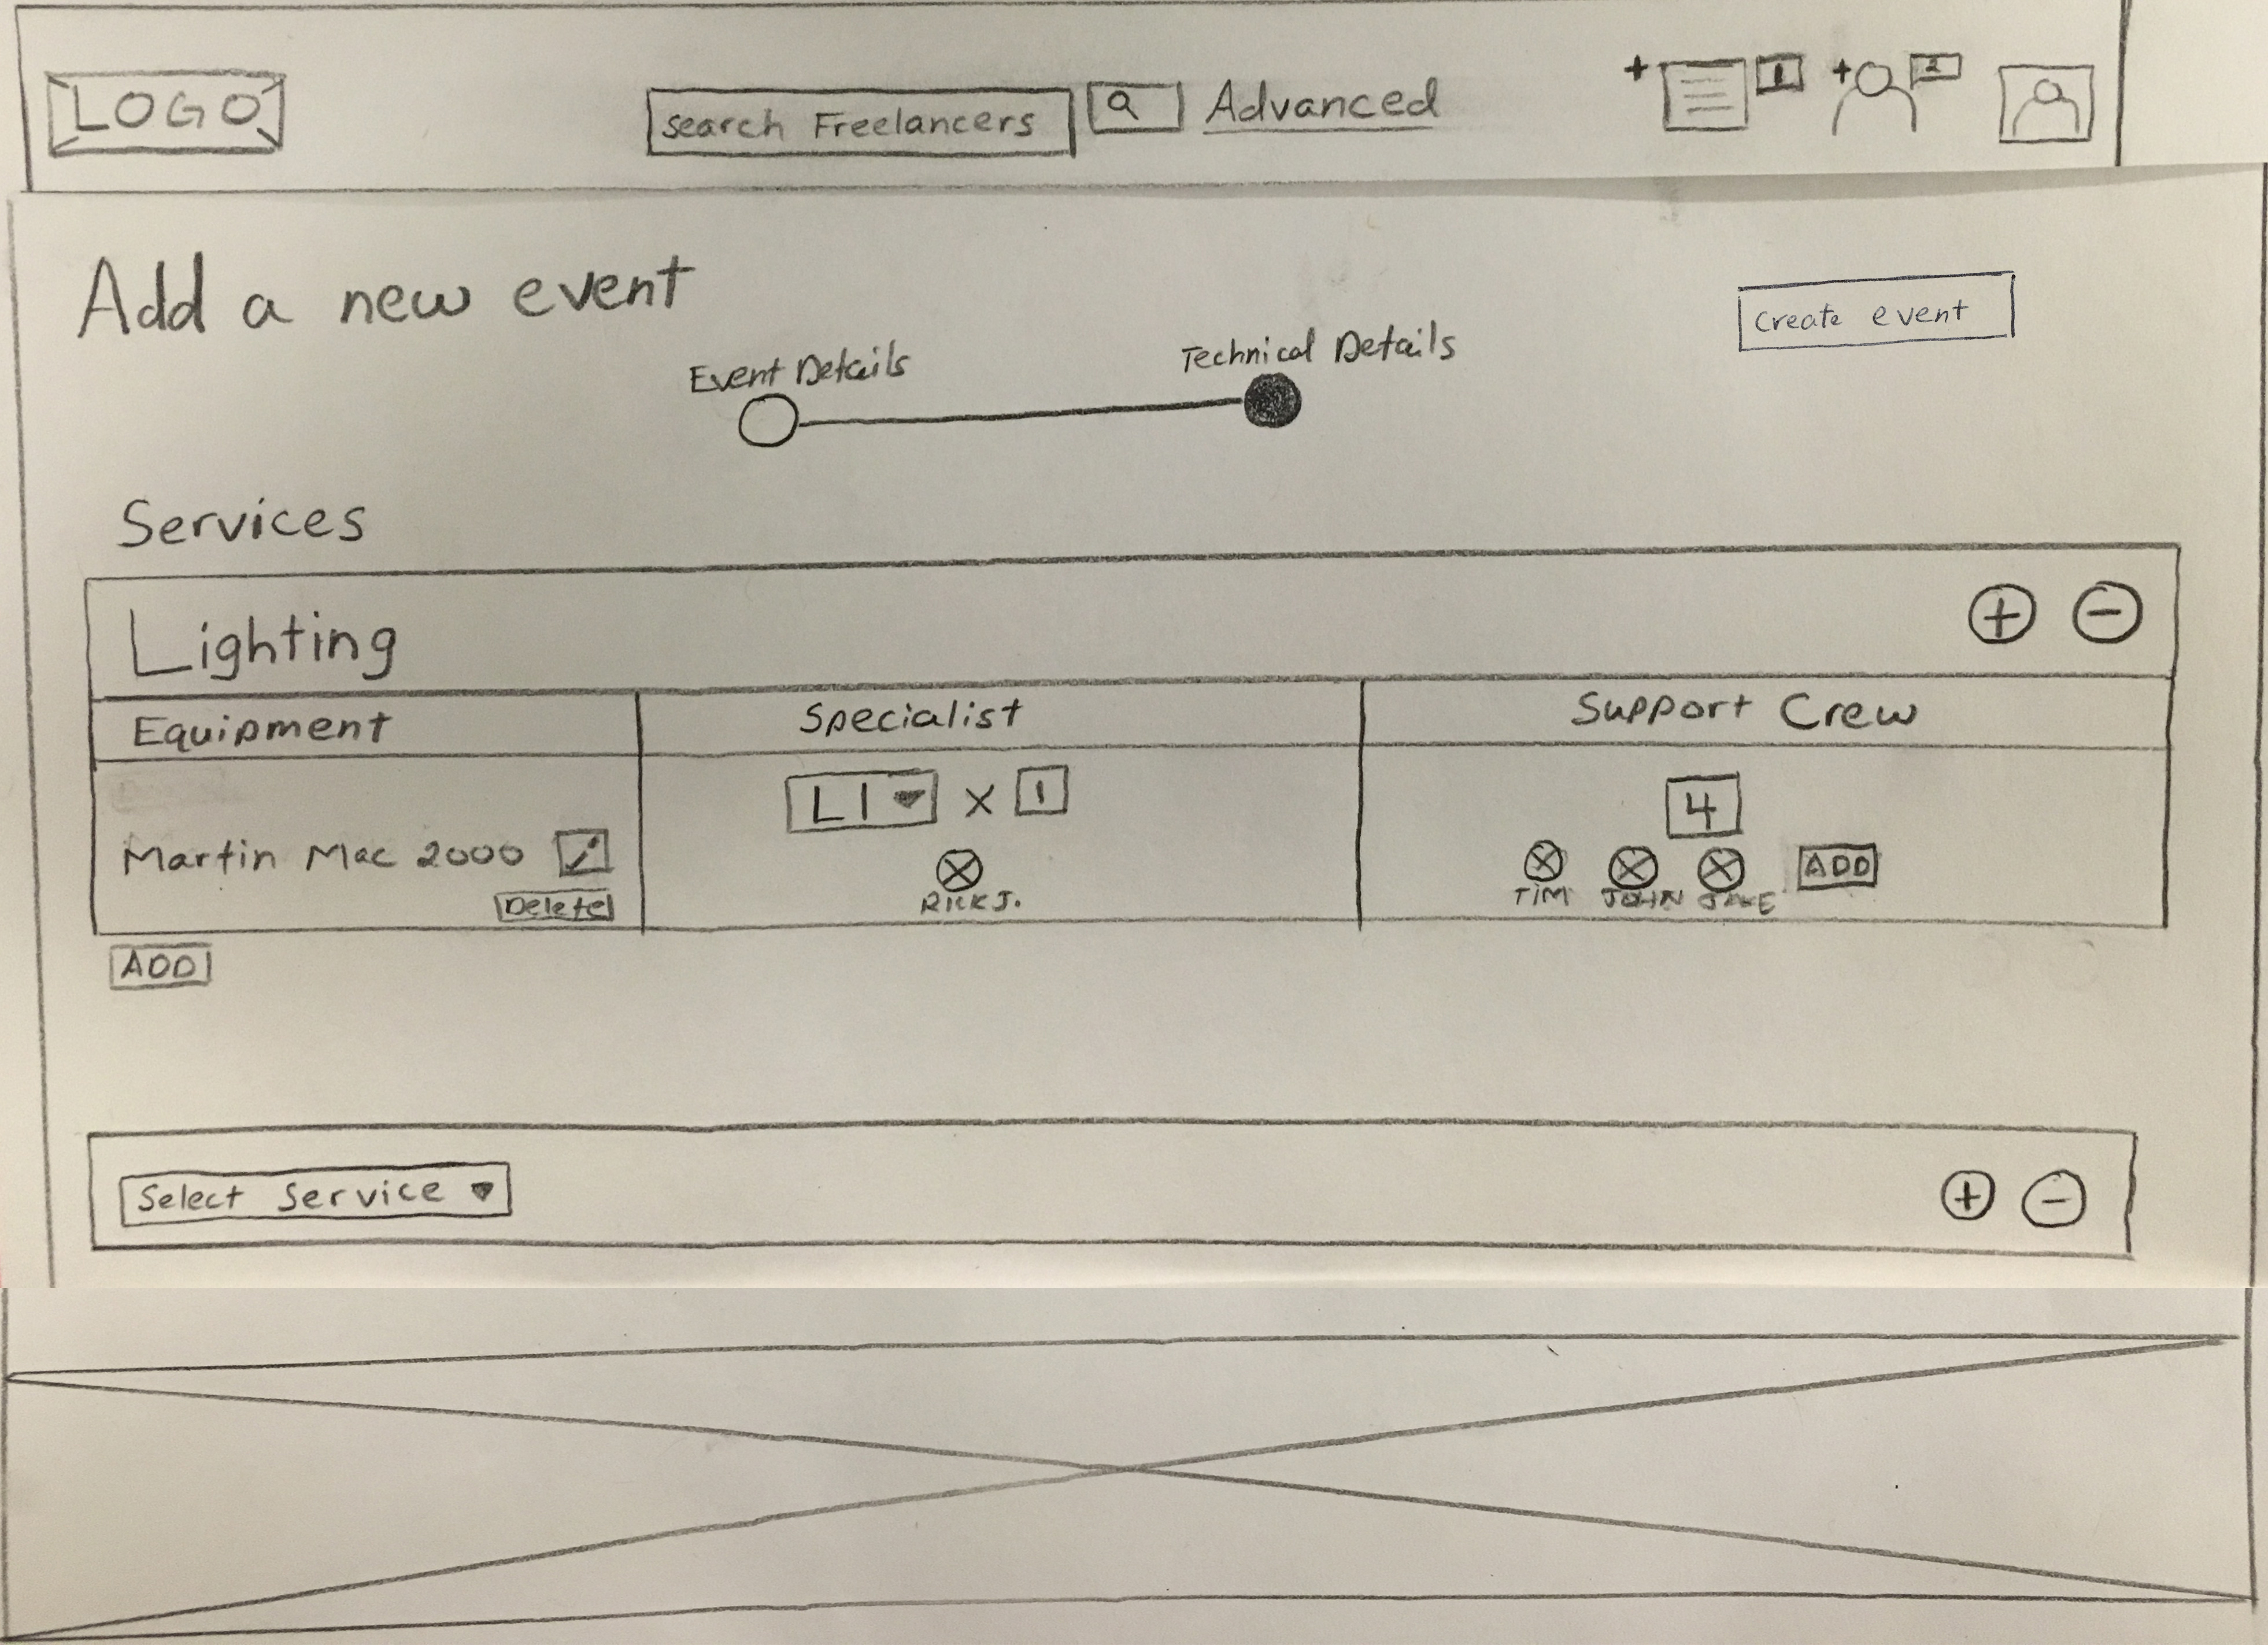 LOGO
Search Freelancers
Advanced
+ 1
+ 2
Add a new event
Create event
Event Details
Technical Details
Services
Lighting + −
Equipment
Specialist
Support Crew
L1 x 1
4
Martin Mac 2000
Delete
RICK J.
TIM JOHN JAKE ADD
ADD
Select Service + −